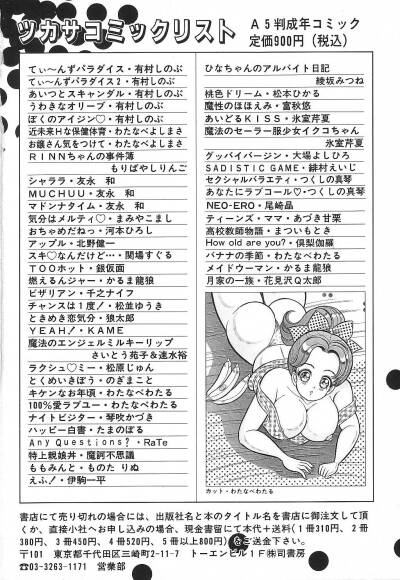 ツカサコミックリスト
A5判成年コミック
定価900円(税込)
てぃ〜んずパラダイス・有村しのぶ
てぃ〜んずパラダイス2・有村しのぶ
あいつとスキャンダル・有村しのぶ
うわきなオリーブ・有村しのぶ
ぼくのアイジン♡・有村しのぶ
近未来Hな保健体育・わたなべよしまさ
お嬢さん気をつけて・わたなべよしまさ
RINNちゃんの事件簿
もりばやしりんご
シャララ・友永 和
MUCHUU・友永 和
マドンナタイム・友永 和
気分はメルティ♡・まみやこまし
おちゃめだねっ・河本ひろし
アップル・北野健一
スキ♡なんだけど…・関場すぐる
TOOホット・銀仮面
燃えるんジャー・かるま龍狼
ビザリアン・千之ナイフ
チャンスは1度!・松並ゆうき
ときめき恋気分・狼太郎
YEAH!・KAME
魔法のエンジェルミルキーリップ
さいとう苑子&速水裕
ラクシュ♡ミー・松原じゅん
とくめいきぼう・のぎまこと
キケンなお年頃・わたなべわたる
100%愛ラブユー・わたなべわたる
ナイトビジター・琴吹かづき
ハッピー白書・たまのぼる
Any Questions?・RaTe
特上親娘丼・魔訶不思議
ももみんと・ものた りぬ
えふ!・伊駒一平
ひなちゃんのアルバイト日記
綾坂みつね
桃色ドリーム・松本ひかる
魔性のほほえみ・富秋悠
あいどるKISS・氷室芹夏
魔法のセーラー服少女イクコちゃん
氷室芹夏
グッバイバージン・大場よしひろ
SADISTIC GAME・緋村えいじ
セクシャルバラエティ・つくしの真琴
あなたにラブコール♡・つくしの真琴
NEO-ERO・尾崎晶
ティーンズ・ママ・あづき甘栗
高校教師物語・まついもとき
How old are you?・倶梨伽羅
バナナの季節・わたなべわたる
メイドウーマン・かるま龍狼
月家の一族・花見沢Q太郎
カット・わたなべわたる
書店にて売り切れの場合には、出版社名と本のタイトル名を書店に御注文して頂
くか、直接小社へお申し込みになるかです。現金書留にて本代+送料(1冊310円、2冊
380円、3冊450円、4冊520円、5冊以上800円)をご送金下さい。
〒101 東京都千代田区三崎町2-11-7 トーエンビル1F㈱司書房
☎03-3263-1171 営業部